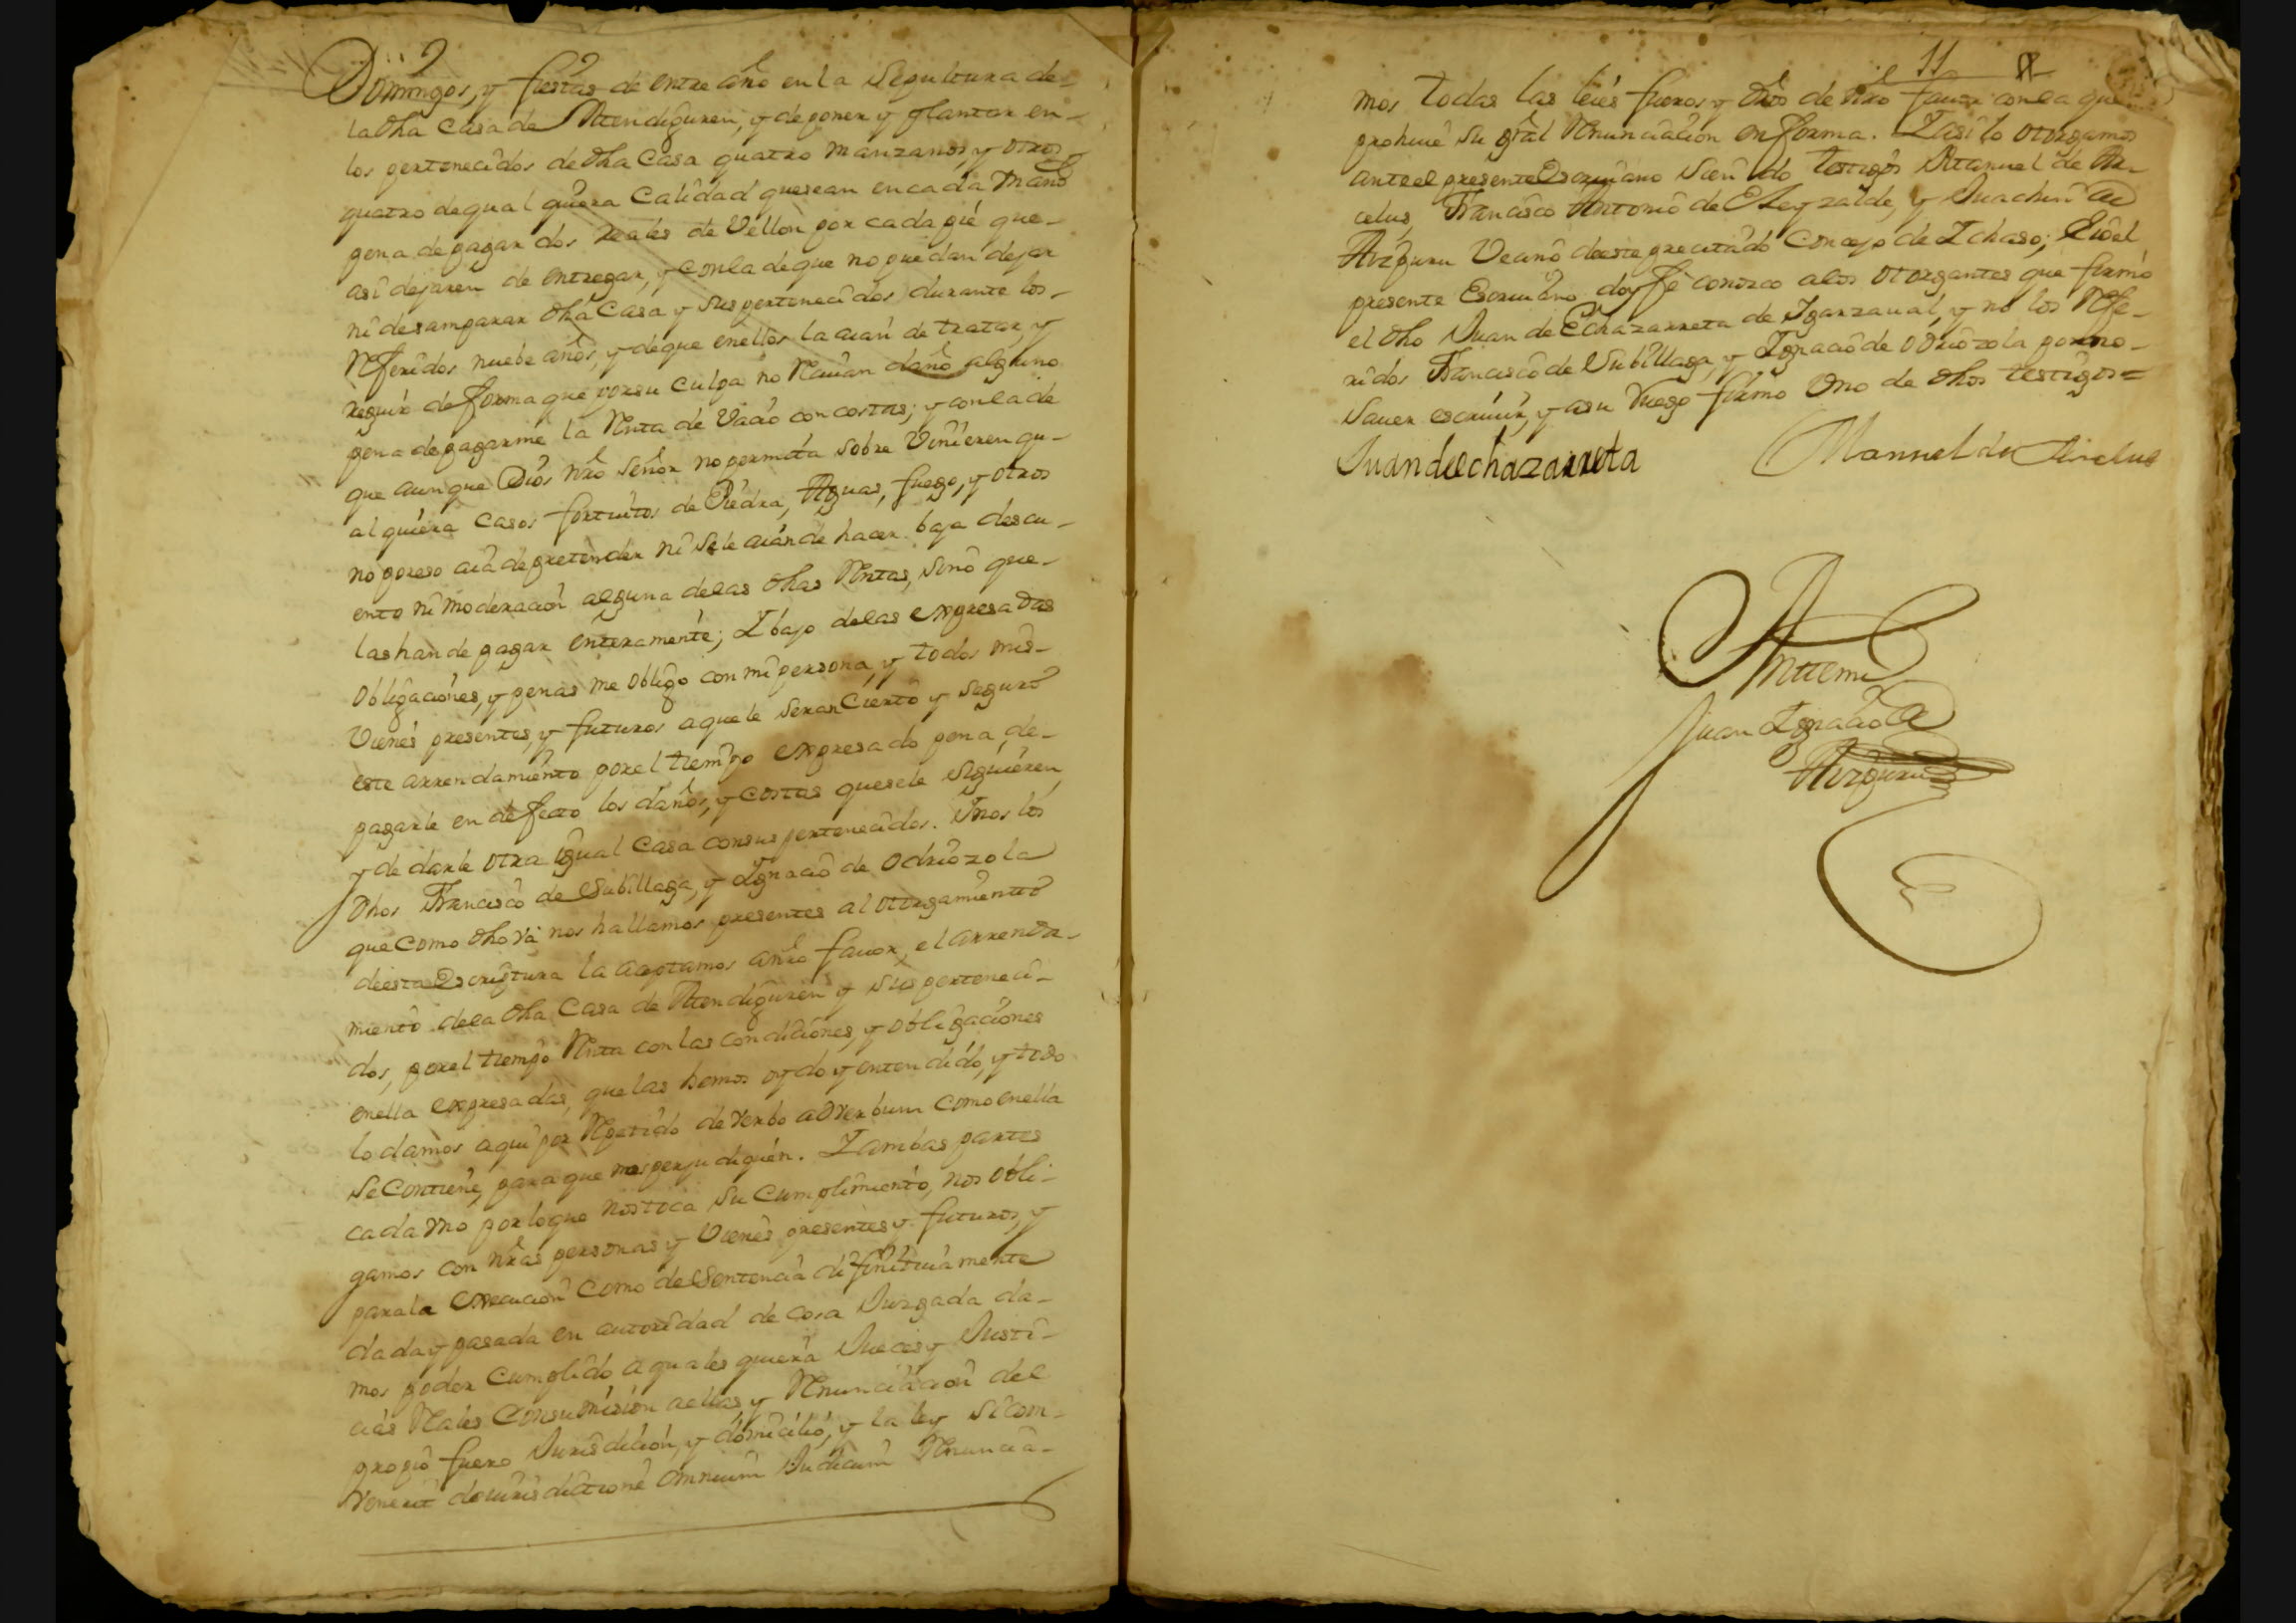 Domingos, y fiestas de entre año en la Sepultura de-
la dha Casa de Mendiguren, y de poner y plantar en-
los pertenecidos de dha Casa quatro manzanos, y otros
quatro de qual quiera Calidad que sean en cada un año
pena de pagar dos reales de Vellon por cada pié que-
asi dejaren de entregar, y con la de que no puedan dejar
ni desamparar dha Casa y sus pertenecidos durante los-
Referidos nuebe años, y de que en ellos la aian de tratar, y
reguir de forma que por su culpa no Reciuan daño alguno
pena de pagarme la Renta de Vacio con costas; y con la de
que aunque Dios nro Señor no permita sobre Vinieren qu-
al quiera Casos fortuitos de Piedra, Aguas, fuego, y otros
no por eso aia de pretender ni se le aian de hacer baja descu-
ento ni moderacion alguna de las dhas Rentas, sino que-
las han de pagar enteramente; I bajo de las expresadas
Obligaciones, y penas me obligo con mi persona, y todos mis-
Vienes presentes, y futuros a que le seran Cierto y seguro
este arrendamiento por el tiempo expresado pena de-
pagarle en defecto los daños, y costas que se le siguieren,
y de darle otra igual Casa con sus pertenecidos. I nos los
dhos Francisco de Subillaga, y Ignacio de Odriozola
que como dho va nos hallamos presentes al otorgamiento
de esta Escriptura la aceptamos a nro fauor, el arrenda-
miento de la dha Casa de Mendiguren y sus perteneci-
dos, por el tiempo Renta con las condiciones, y obligaciones
en ella expresadas, que las hemos oydo y entendido, y todo
lo damos aqui por Repetido de verbo ad verbum como en ella
se Contiene, para que nos perjudiquen. I ambas partes
cada uno por lo que nos toca su Cumplimiento, nos obli-
gamos con nras personas y Vienes presentes y futuros, y
para la execucion como de Sentencia difinitiuamente
dada y pasada en autoridad de cosa Juzgada da-
mos poder Cumplido a quales quiera Jueces y Justi-
cias Reales Con sumision a ellas, y Renunciacion del
propio fuero Jurisdicion, y domicilio, y la ley si com-
venerit de iurisdictione omnium Judicum Renuncia-
11
mos todas las leies fueros y dros de nro fauor con la que
prohiue su gral Renunciacion en forma. I asi lo otorgamos
ante el presente Escriuano siendo testigos Manuel de Ar-
celus, Francisco Antonio de Eleyzalde, y Juachin de
Arizguru Vecinos de este precitado Concejo de Ichaso; E io el
presente Escriuano doy fe conozco a los otorgantes que firmó
el dho Juan de Echazarreta de Igarzaual, y no los Refe-
ridos Francisco de Subillaga, y Ignacio de Odriozola por no-
sauer escriuir, y a su Ruego firmo Uno de dhos testigos=
Juan de echazarreta
Manuel de Arcelus
Antte mi
Juan Ignacio de
Arizguru